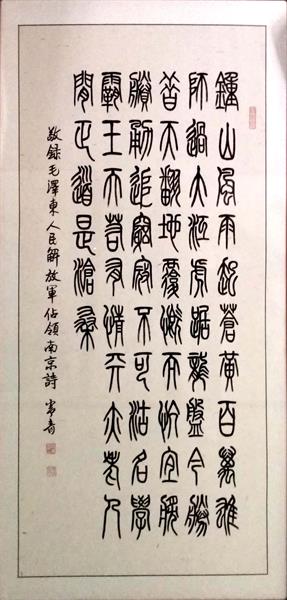 鍾山風雨起蒼黃百萬雄
師過大江虎踞龍盤今勝
昔天翻地覆慨而忼宜將
賸勇追窮寇不可沽名學
霸王天若有情天亦老人
間正道是滄桑
敬録毛澤東人民解放軍佔領南京詩